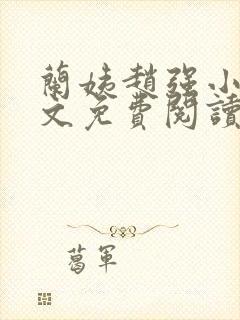 蘭姨趙強小
文免費閱讀
葛軍